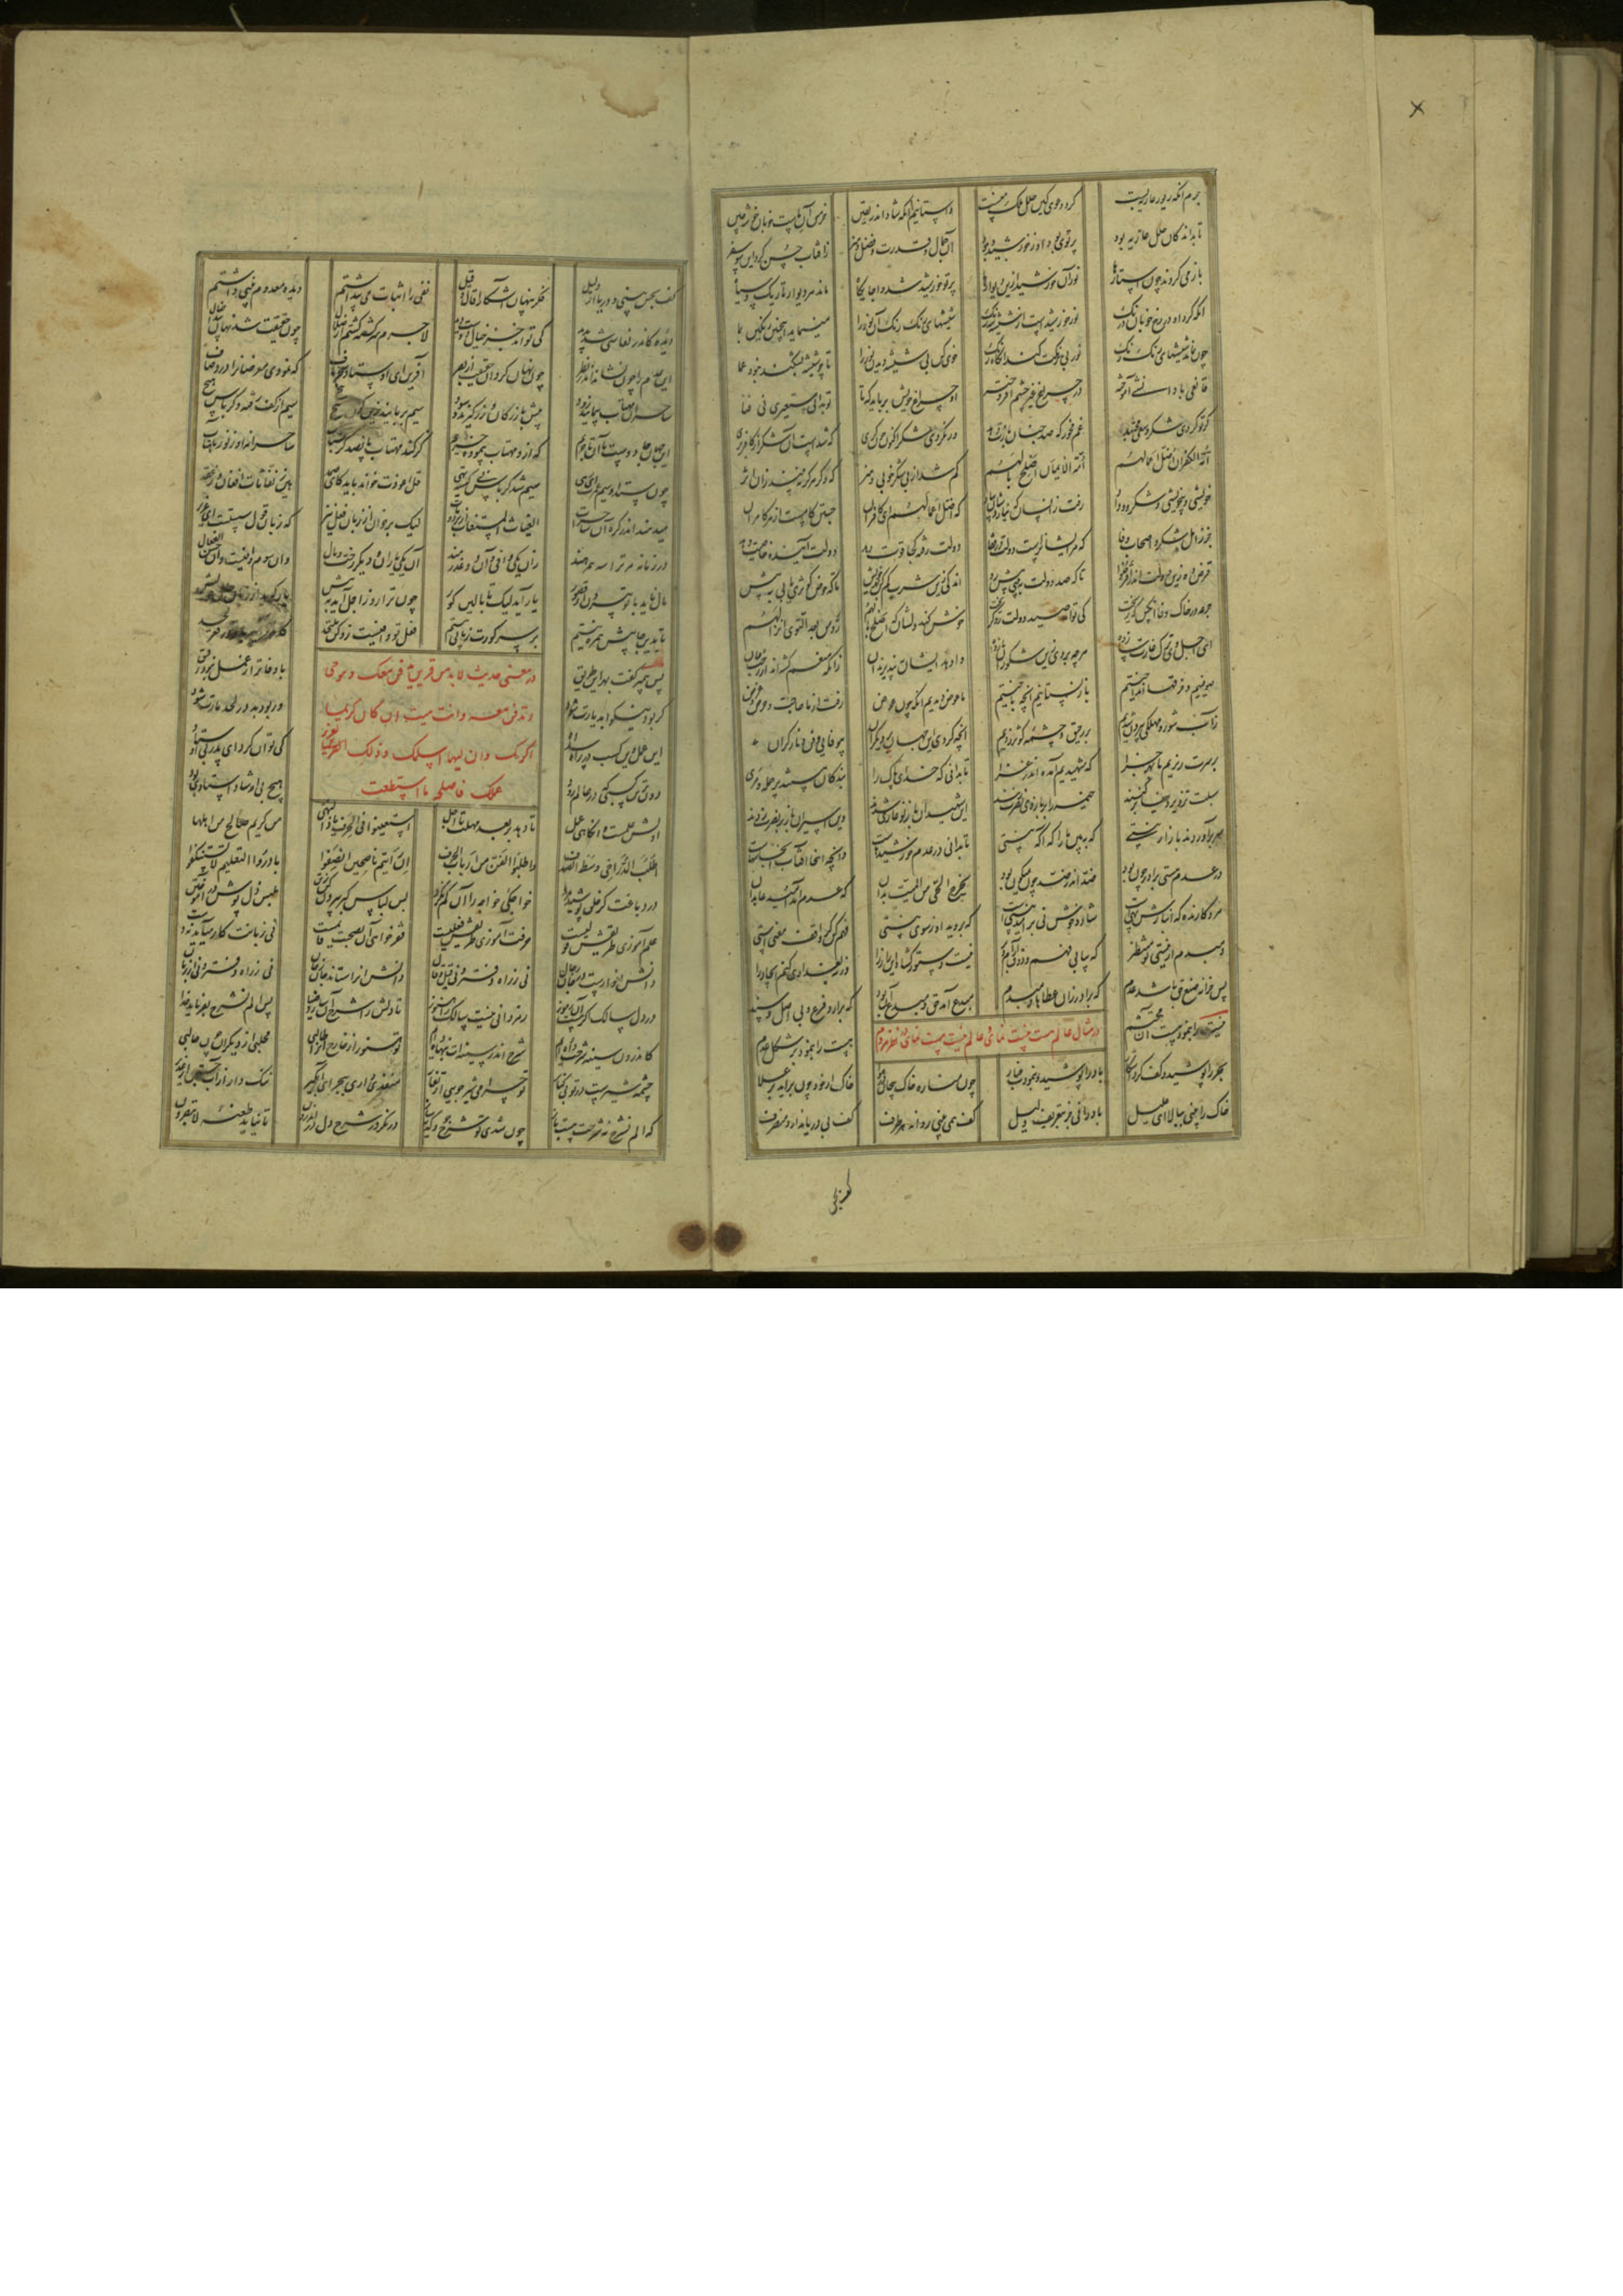 جرم آنکه زیور عاریه بست کرد دعوی کین حلل ملک منست واستانیم آنکه تا داند یقین خرمن آن ماست خوبان خوشه چین
تا بداند کان حلل عاریه بود پرتوی بود او ز خورشید وجود آن جمال و قدرت و فضل و هنر ز آفتاب حسن کرد این سو سفر
باز می گردند چون استارها نور آن خورشید ازین دیوارها پرتو خورشید شد وا جایگاه ماند هر دیوار تاریک و سیاه
آنکه کرد او در رخ خوبانت دنگ نور خورشیدست از شیشه سه رنگ شیشهای رنگ رنگ آن نور را می نماید این چنین رنگین بما
چون نماند شیشهای رنگ رنگ نور بی رنگت کند آنگاه دنگ خوی کن بی شیشه دیدن نور را تا چو شیشه بشکند نبود عما
قانعی با دانشی آموخته در چراغ غیر چشم افروخته او چراغ خویش برباید که تا تو بدانی مستعیری نی فتا
گر تو کردی شکر و سعی مجتهد غم مخور که صد چنان بازت دهد ور نکردی شکر اکنون خون گری که شدست آن حسن از کافر بری
امة الکفران اضل اعمالهم امة الایمان اصلح بالهم گم شد از بی شکر خوبی و هنر که دگر هرگز نبیند زان اثر
خویشی و بی خویشی و شکر و وداد رفت زان سان که نیاردشان بیاد که اضل اعمالهم ای کافران جستن کامست از هر کامران
جز ز اهل شکر و اصحاب وفا که مر ایشان راست دولت در قفا دولت رفته کجا قوت دهد دولت آینده خاصیت دهد
قرض ده زین دولت اندر اقرضوا تا که صد دولت ببینی پیش رو اندکی زین شرب کم کن بهر خویش تا که حوض کوثری یابی به پیش
جرعه بر خاک وفا آنکس که ریخت کی تواند صید دولت زو گریخت خوش کند دلشان که اصلح بالهم رد من بعد التوی انزالهم
ای اجل وی ترک غارت ساز ده هرچه بردی زین شکوران باز ده وا دهد ایشان نپذیرند آن زانکه منعم گشته اند از رخت جان
صوفییم و خرقها انداختیم باز نستانیم انچه باختیم ما عوض دیدیم آنگه چون عوض رفت از ما حاجت و حرص و غرض
ز آب شور و مهلکی بیرون شدیم بر رحیق و چشمه کوثر زدیم آنچه کردی ای جهان با دیگران بی وفایی و فن و ناز گران
بر سرت ریزیم ما بهر جزا که شهیدیم آمده اندر غزا تا بدانی که خدای پاک را بندگان هستند پر حمله و مری
سبلت تزویر دنیا بر کنند خیمه را بر باروی نصرت زنند این شهیدان باز نو غازی شدند وین اسیران باز بر نصرت زدند
سر برآوردند باز از نیستی که ببین ما را گر اکمه نیستی تا بدانی در عدم خورشیدهاست وآنچه اینجا آفتاب آنجا سهاست
در عدم هستی برادر چون بود ضد اندر ضد چون مکنون بود یخرج الحی من المیت بدان که عدم آمد امید عابدان
مرد کارنده که انبارش تهیست شاد و خوش نی بر امید نیستیست که بروید آن ز سوی نیستی فهم کن گر واقف معنیستی
دم بدم از نیستی تو منتظر که بیابی فهم و ذوق آرام و بر نیست دستوری گشاد این راز را ورنه بغدادی کنم ابخاز را
پس خزانه صنع حق باشد عدم که برآرد زان عطاها دم بدم مبدع آمد حق و مبدع آن بود که برآرد فرع بی اصل و سند
در مثال عالم هست نیست نمای عالم نیست هست نمای
نیست را بنمود هست آن محتشم هست را بنمود بر شکل عدم
بحر را پوشید و کف کرد آشکار باد را پوشید و بنمودت غبار چون مناره خاک پیچان در هوا خاک از خود چون برآید بر علا
خاک را بینی ببالا ای علیل باد را نی جز بتعریف دلیل کف همی بینی روانه هر طرف کف بی دریا ندارد منصرف
کف بحس
کف بحس بینی و دریا از دلیل فکر پنهان آشکارا قال و قیل نفی را اثبات می پنداشتیم دیده معدوم بینی داشتیم
دیده کاندر نعاسی شد پدید کی تواند جز خیال و نیست دید لاجرم سرگشته گشتیم از ضلال چون حقیقت شد نهان پیدا خیال
این عدم را چون نشاند اندر نظر چون نهان کرد آن حقیقت از بصر آفرین ای اوستاد سحرباف که نمودی معرضان را درد صاف
ساحران مهتاب پیمایند زود پیش بازرگان و زر گیرند سود سیم بربایند زین گون پیچ پیچ سیم از کف رفته و کرباس هیچ
این جهان جادوست ما آن تاجریم که ازو مهتاب پیموده خریم گز کند مهتاب پانصد گز شتاب ساحرانه او ز نور ماهتاب
چون ستد او سیم عمرت ای رهی سیم شد کرباس نی کیسه تهی قل اعوذت خواند باید کای احد هین ز نفاثات افغان وز عقد
می دمند اندر گره آن ساحرات الغیاث المستغاث از برد و مات لیک برخوان از زبان فعل نیز که زبان قول سستست ای عزیز
در زمانه مر ترا سه همره اند زان یکی وافی و آن دو غدرمند آن یکی یاران و دیگر رخت و مال وان سوم وافیست وان حسن الفعال
مال ناید با تو بیرون از قصور یار آید لیک تا بالین گور چون ترا روز اجل آید به پیش یار گوید از زبان حال خویش
تا بدینجا بیش همره نیستم بر سر گورت زمانی بیستم فعل تو وافیست زو کن ملتحد
در معنی حدیث لابد من قرین یدفن معک و هو حی
و تدفن معه و انت میت ان کان کریما
اکرمک وان لیما اسلمک و ذلک القرین
عملک فاصلحه ما استطعت
پس پیمبر گفت بهر این طریق با وفاتر از عمل نبود رفیق
گر بود نیکو ابد یارت شود ور بود بد در لحد مارت شود
این عمل وین کسب در راه سداد کی توان کرد ای پدر بی اوستاد
دون ترین کسبی در عالم رود هیچ بی ارشاد استادی بود
اولش علمست و آنگاهی عمل تا دهد بر بعد مهلت تا اجل استعینوا فی الحرف یا ذا النهی من کریم صالح من اهلها
اطلب الدر اخی وسط الصدف واطلبوا الفن من ارباب الحرف ان رایتم ناصحین انصفوا بادروا التعلیم لا تستنکفوا
در دباغت گر خلق پوشید مرد خواجگی خواجه را آن کم نکرد پس لباس کبر بیرون کن ز تن ملبس ذل پوش در آموختن
علم آموزی طریقش قولیست حرفت آموزی طریقش فعلیست فقر خواهی آن بصحبت قایمست نی زبانت کار می آید نه دست
دانش انوارست در جان رجال نی ز راه دفتر و نی قیل و قال دانش آنرا ستاند جان ز جان نی ز راه دفتر و نی از زبان
در دل سالک اگر هست آن رموز رمزدانی نیست سالک را هنوز تا دلش را شرح آن سازد ضیا پس الم نشرح بفرماید خدا
کاندرون سینه شرحت داده ایم شرح اندر سینه ات بنهاده ایم تو هنوز از خارج آنرا طالبی محلبی از دیگران چون حالبی
چشمه شیرست در تو بی کنار تو چرا می شیر جویی از تغار منفذی داری ببحر ای آبگیر ننگ دار از آب جستن از غدیر
که الم نشرح نه شرحت هست باز چون شدی تو شرح جو و کدیه ساز در نگر در شرح دل در اندرون تا نیاید طعنه لا تبصرون